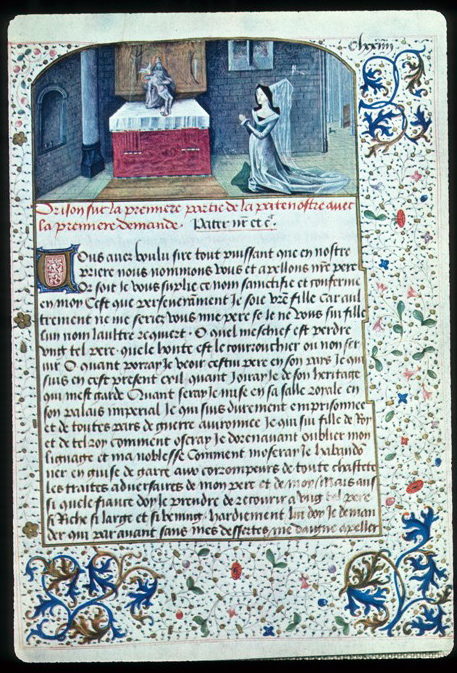 Orison sur la premiere partie de la patenostre avec
la premiere demande. Pater nr̄ et cā.
Vous avez voulu sire tout puissant que en nostre
priere nous nommons vous et apellons nr̄e pere
Or soit Je vous suplie ce nom sanctifie et conferme
en moy Cest que perseverāment Je soie vr̄e fille Car aul
trement ne me seriez vous mie pere se Je ne vous sui fille
lun nom laultre requiert. O quel meschief est perdre
ung tel pere. quele honte est le courouchier ou non ser
vir O quant porray Je veoir cestui pere en son pays Je qui
suis en cest present exil quant Joiray Je de son heritage
qui mest garde Quant seray Je mise en sa salle royale en
son palais imperial Je qui suis durement emprisonnee
et de toutes pars de guerre avironnee Je qui sui fille de Roy
et de tel roy comment oseray Je dorenavant oublier mon
lignage et ma noblesse Comment moseray Je habando
ner en guise de garce aux corrompeurs de toute chastete
les traites adversaires de mon pere et de moy Mais aus
si quele fiance doy Je prendre de retourir a ung tel pere
si Riche si large et si bening. hardiement lui doy Je deman
der qui par avant sans mes dessertes me daigne apeller